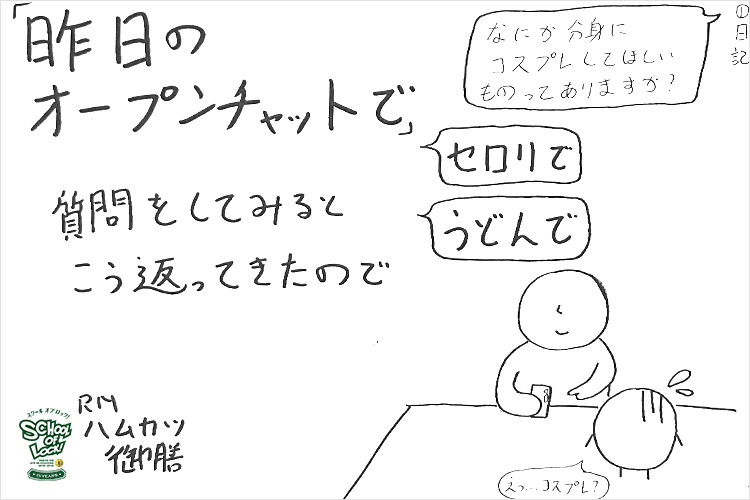 ①日記
「昨日の
オープンチャットで」
なにか分身に
コスプレしてほしい
ものってありますか?
セロリで
うどんで
質問をしてみると
こう返ってきたので
えっ…コスプレ?
RN
ハムカツ
御膳
スクールオブロック!
SCHOOL
OF
LOCK!